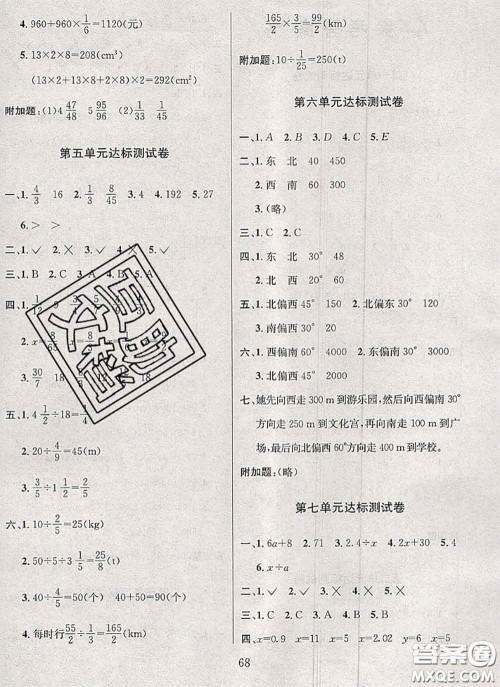 4. 960+960×1/6=1120(元)
5. 13×2×8=208(cm³)
(13×2+13×8+2×8)×2=292(cm²)
附加题:(1)4 47/48 5 95/96 (2)1/33 1/45
第五单元达标测试卷
一、1. 4/3 16 2. 1/3 8/45 3. 4 4. 192 5. 27
6. > >
二、1. ✓ 2. × 3. × 4. × 5. ✓
三、1. B 2. C 3. A 4. C
四、1. 1/12 9
2. x=
3. 30/7 18
五、1. 4/9÷18=
2. 20÷4/9=45
3. 3/5÷1/2=
六、1. 10÷2/5=25(kg)
2. 50÷5÷3/5
3. 40÷4/5=50(个) 40+50=90(个)
4. 每时行55/2÷1/3=165/2(km)
165/2×3/5=99/2(km)
附加题:10÷1/25=250(t)
第六单元达标测试卷
一、1. A 2. B 3. D 4. C 5. E
二、1. 东 北 40 450
2. 西 南 60 300
3. (略)
三、1. C 2. C
四、1. 东 北 30° 48
2. 北 西 30° 60
五、1. 北偏西 45° 150 2. 北偏东 30° 120
3. 南偏西 30° 200
六、1. 西偏南 60° 2000 2. 东偏南 30° 3000
3. 北偏西 45° 4000
七、她先向西走 300 m 到游乐园,然后向西偏南 30°
方向走 250 m 到文化宫,再向南走 100 m 到广
场,最后向北偏西 60° 方向走 400 m 到学校。
附加题:(略)
第七单元达标测试卷
一、1. 6a+8 2. 71 3. 2.4÷x 4. 2x+30 5. 4x
6. x÷a
二、1. ✓ 2. ✓ 3. × 4. × 5. ×
三、1. C 2. D 3. C 4. A 5. C
四、x=0.9 x=13 x=2.02 y=5 y=6
68
答案圈
MXQE.COM